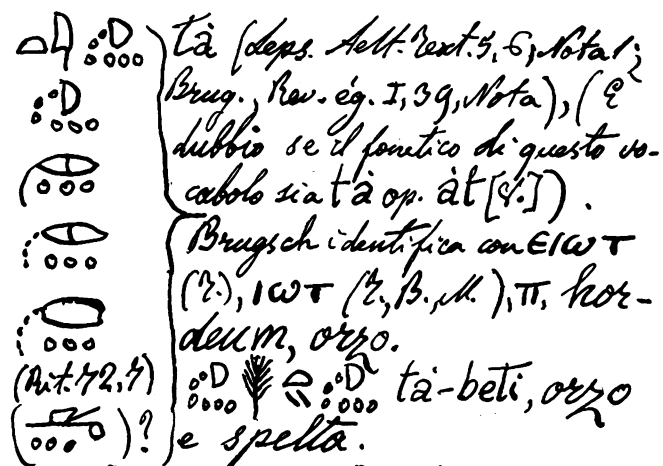 tȧ (Leps. Aelt. Text. 5, 6, Nota 1;
Brug., Rev. ég. I, 39, Nota), (È
dubbio se il fonetico di questo vo-
cabolo sia tȧ op. ȧt [V.]).
Brugsch identifica con ⲉⲓⲱⲧ
(T.), ⲓⲱⲧ (T., B., M.), ⲡ, hor-
deum, orzo.
(Rit. 72, 7) tȧ-beti, orzo
( )? e spelta.